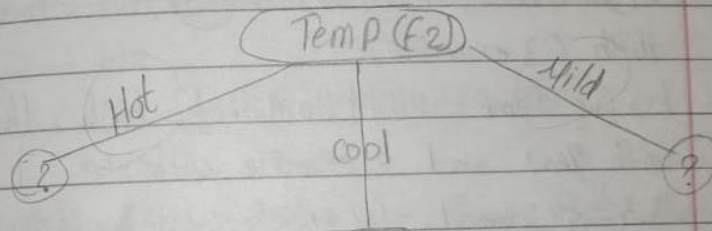 Temp (f2)
Hot
Mild
cool
?
?